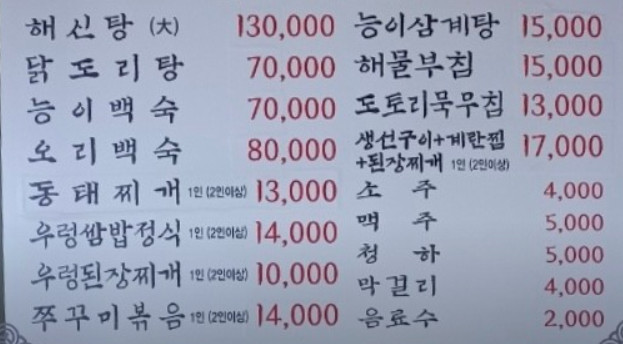 해신탕 (大) 130,000
닭도리탕 70,000
능이백숙 70,000
오리백숙 80,000
동태찌개 1인 (2인이상) 13,000
우렁쌈밥정식 1인 (2인이상) 14,000
우렁된장찌개 1인 (2인이상) 10,000
쭈꾸미볶음 1인 (2인이상) 14,000
능이삼계탕 15,000
해물부침 15,000
도토리묵무침 13,000
생선구이+계란찜
+된장찌개 1인 (2인이상) 17,000
소주 4,000
맥주 5,000
청하 5,000
막걸리 4,000
음료수 2,000